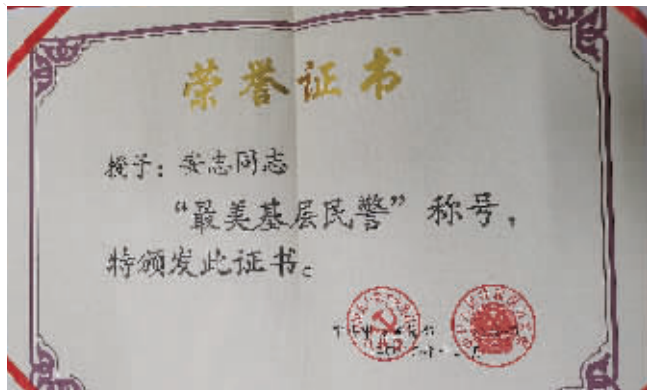 荣誉证书
授予：安志同志
“最美基层民警”称号，
特颁发此证书。